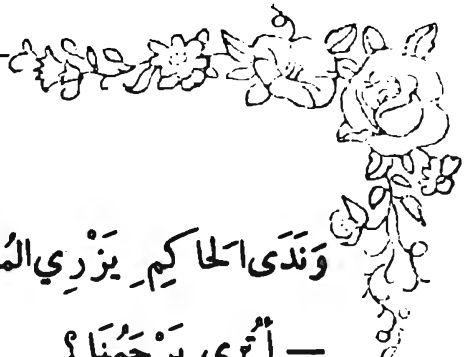 وَنَدَى الحَاكِمِ يَزْرِي
— أَتُرَى يَرْحَمُنَا ؟